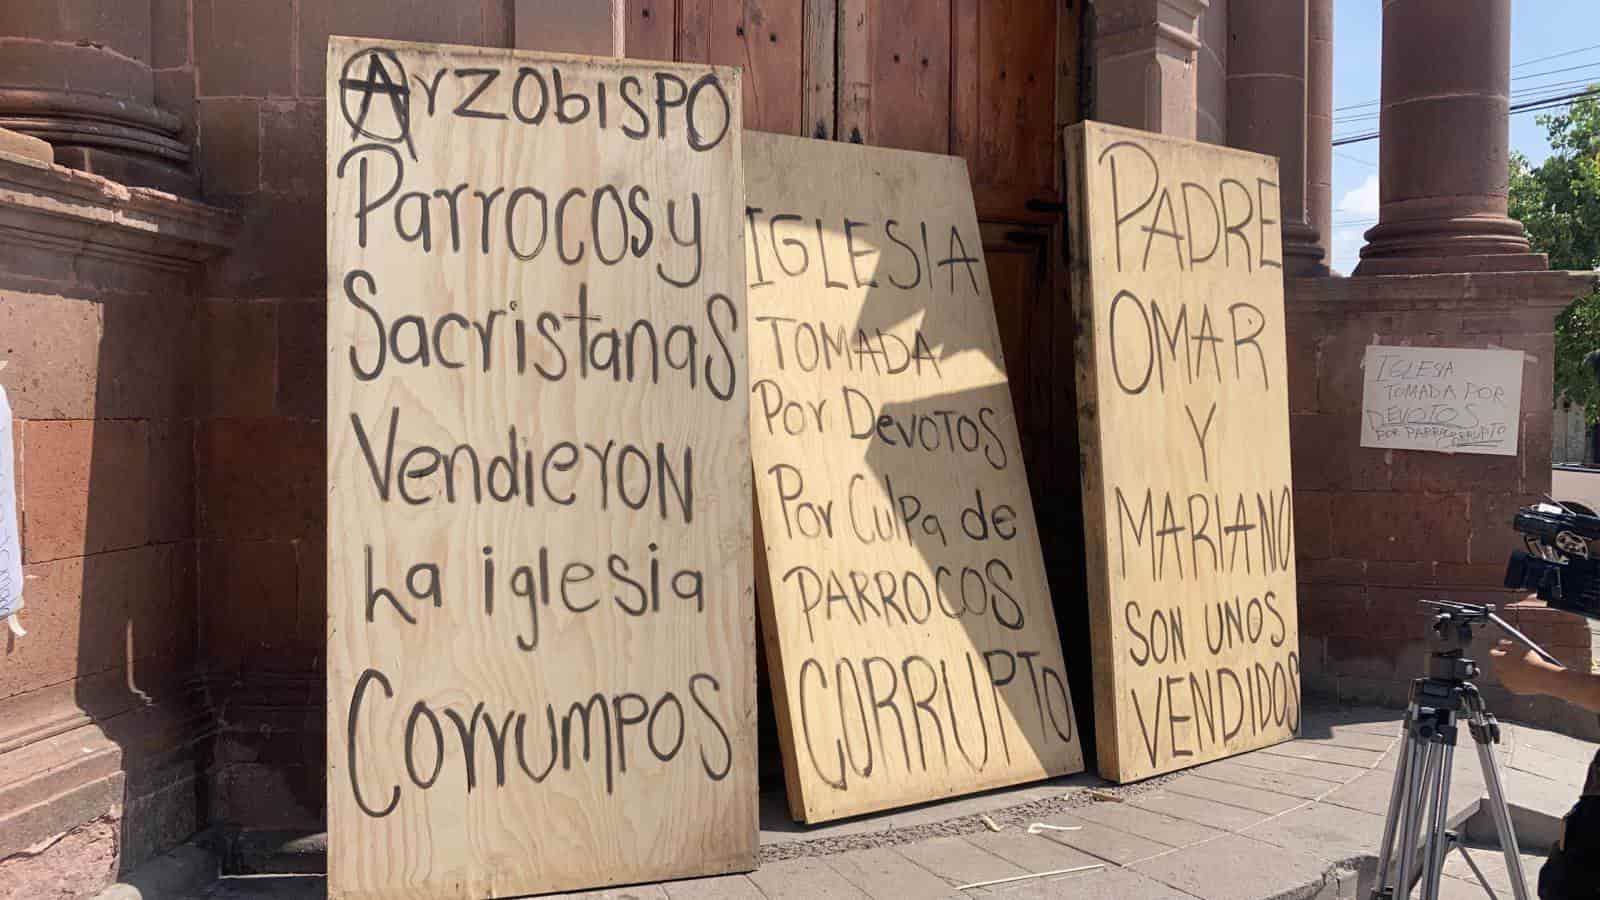 Arzobispo
Parrocos y
Sacristanas
Vendieron
La iglesia
Corrumpos
IGLESIA
TOMADA
Por Devotos
Por Culpa de
PARROCOS
CORRUPTO
PADRE
OMAR
Y
MARIANO
SON UNOS
VENDIDOS
IGLESIA
TOMADA POR
DEVOTOS
POR